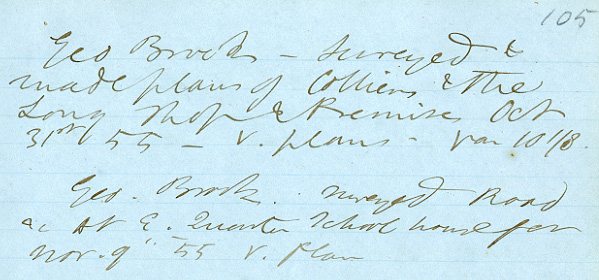 105
Geo Brooks - surveyed &
made plans of Colliers & the
Long Shop & Premises Oct
31st 55 - V. plans - Var 10 1/8.
Geo. Brooks. surveyed Road
&c at E. Quarter School house for
Nov. 9" 55 V. Plan